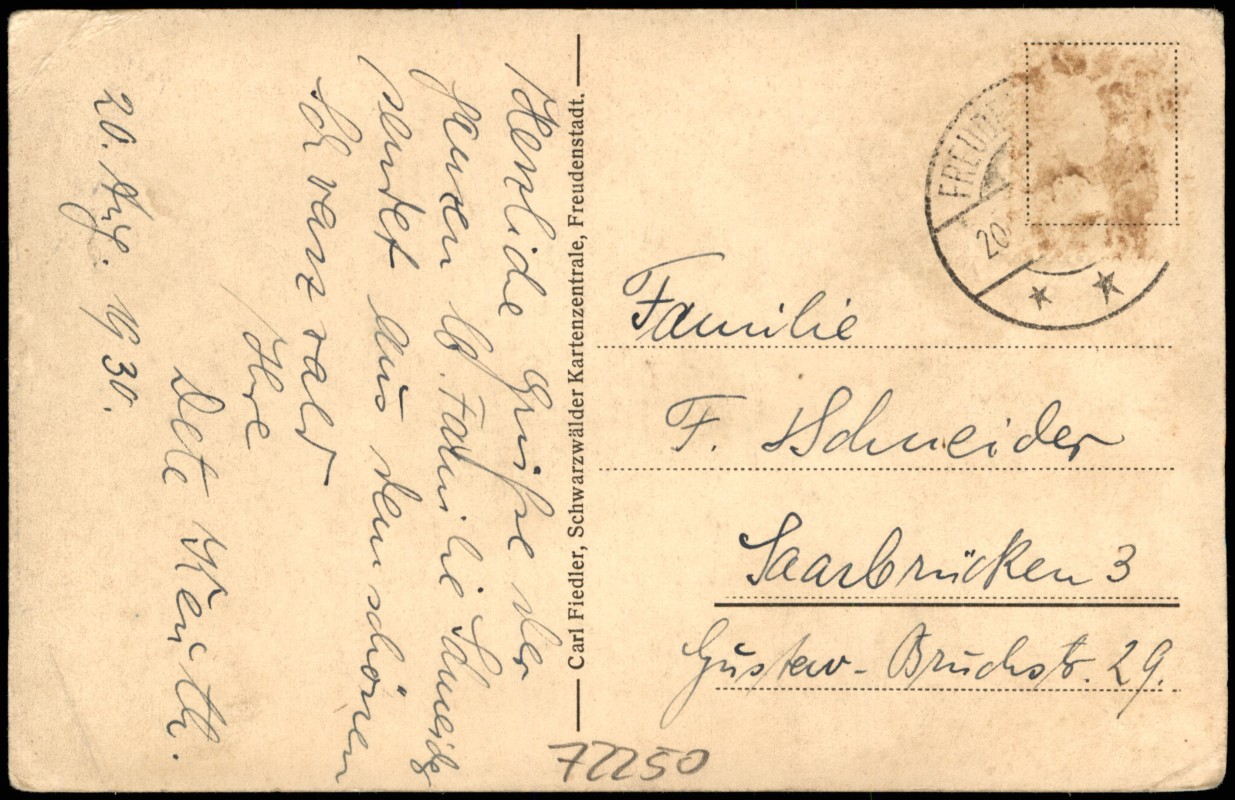 Herzliche Grüße der
ganzen lb. Familie Schneider
sendet aus dem schönen
Schwarzwald
Ihre
Dete
20. Aug. 1930.
Carl Fiedler, Schwarzwälder Kartenzentrale, Freudenstadt.
FREUDE
20
Familie
F. Schneider
Saarbrücken 3
Gustav-Bruchstr. 29.
72250